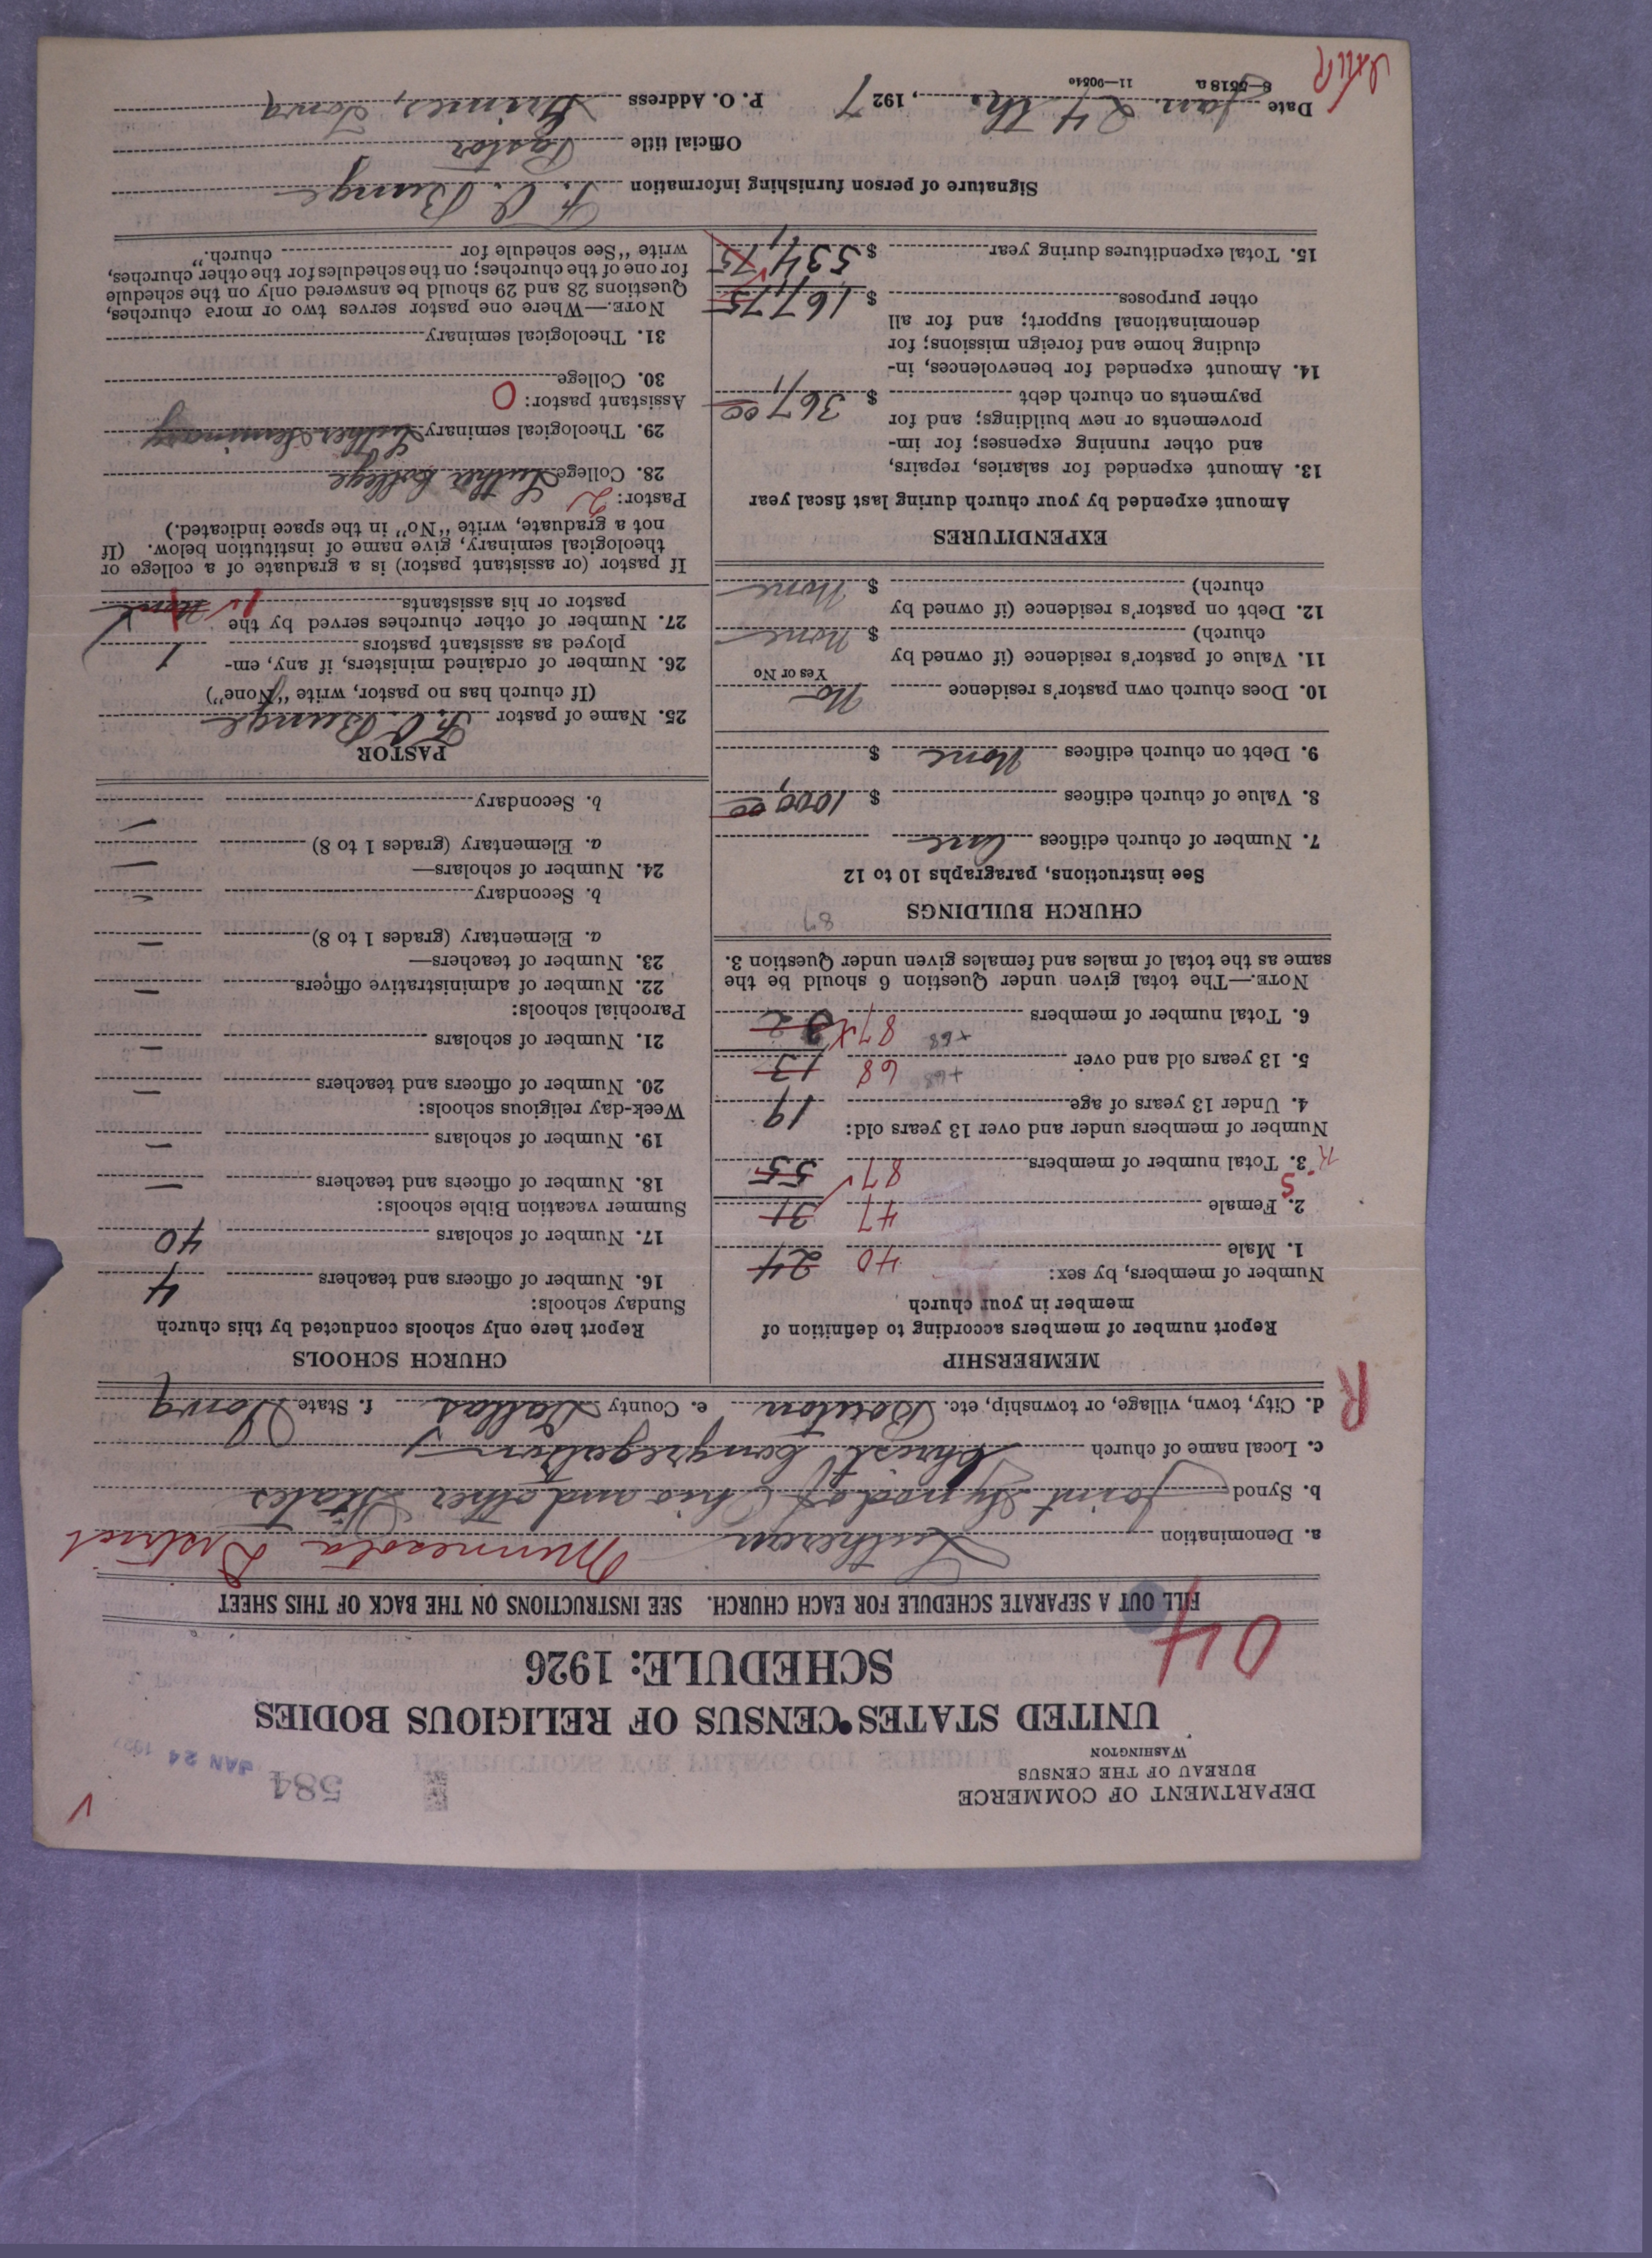 DEPARTMENT OF COMMERCE
BUREAU OF THE CENSUS
WASHINGTON
584
JAN 24 1927
UNITED STATES CENSUS OF RELIGIOUS BODIES
SCHEDULE: 1926
04
FILL OUT A SEPARATE SCHEDULE FOR EACH CHURCH. SEE INSTRUCTIONS ON THE BACK OF THIS SHEET
a. Denomination Lutheran Minnesota District
b. Synod Joint Synod of Ohio and other States
c. Local name of church Christ Congregation
d. City, town, village, or township, etc. Bouton e. County Dallas f. State Iowa
R
MEMBERSHIP
Report number of members according to definition of
member in your church
Number of members, by sex:
1. Male 40 24
2. Female 47 31
S
3. Total number of members 87 55
Number of members under and over 13 years old:
4. Under 13 years of age 19
5. 13 years old and over +68 68 13
6. Total number of members +68 87
NOTE.—The total given under Question 6 should be the
same as the total of males and females given under Question 3.
87
CHURCH BUILDINGS
See instructions, paragraphs 10 to 12
7. Number of church edifices One
8. Value of church edifices $ 1000,00
9. Debt on church edifices None $
10. Does church own pastor's residence No
Yes or No
11. Value of pastor's residence (if owned by
church) $ None
12. Debt on pastor's residence (if owned by
church) $ None
EXPENDITURES
Amount expended by your church during last fiscal year
13. Amount expended for salaries, repairs,
and other running expenses; for im-
provements or new buildings; and for
payments on church debt $ 367,00
14. Amount expended for benevolences, in-
cluding home and foreign missions; for
denominational support; and for all
other purposes $ 167,75
15. Total expenditures during year $ 534,75
CHURCH SCHOOLS
Report here only schools conducted by this church
Sunday schools:
16. Number of officers and teachers 4
17. Number of scholars 40
Summer vacation Bible schools:
18. Number of officers and teachers —
19. Number of scholars —
Week-day religious schools:
20. Number of officers and teachers —
21. Number of scholars —
Parochial schools:
22. Number of administrative officers —
23. Number of teachers—
a. Elementary (grades 1 to 8) —
b. Secondary —
24. Number of scholars—
a. Elementary (grades 1 to 8) —
b. Secondary —
PASTOR
25. Name of pastor F. C. Bunge
(If church has no pastor, write "None")
26. Number of ordained ministers, if any, em-
ployed as assistant pastors
27. Number of other churches served by the
pastor or his assistants 1
If pastor (or assistant pastor) is a graduate of a college or
theological seminary, give name of institution below. (If
not a graduate, write "No" in the space indicated.)
Pastor: 2
28. College Luther College
29. Theological seminary Luther Seminary
Assistant pastor: 0
30. College
31. Theological seminary
NOTE.—Where one pastor serves two or more churches,
Questions 28 and 29 should be answered only on the schedule
for one of the churches; on the schedules for the other churches,
write "See schedule for church."
Signature of person furnishing information F. C. Bunge
Official title Pastor
Date Jan. 24 th. , 1927 P. O. Address Grimes, Iowa
8—5518a 11—9051c